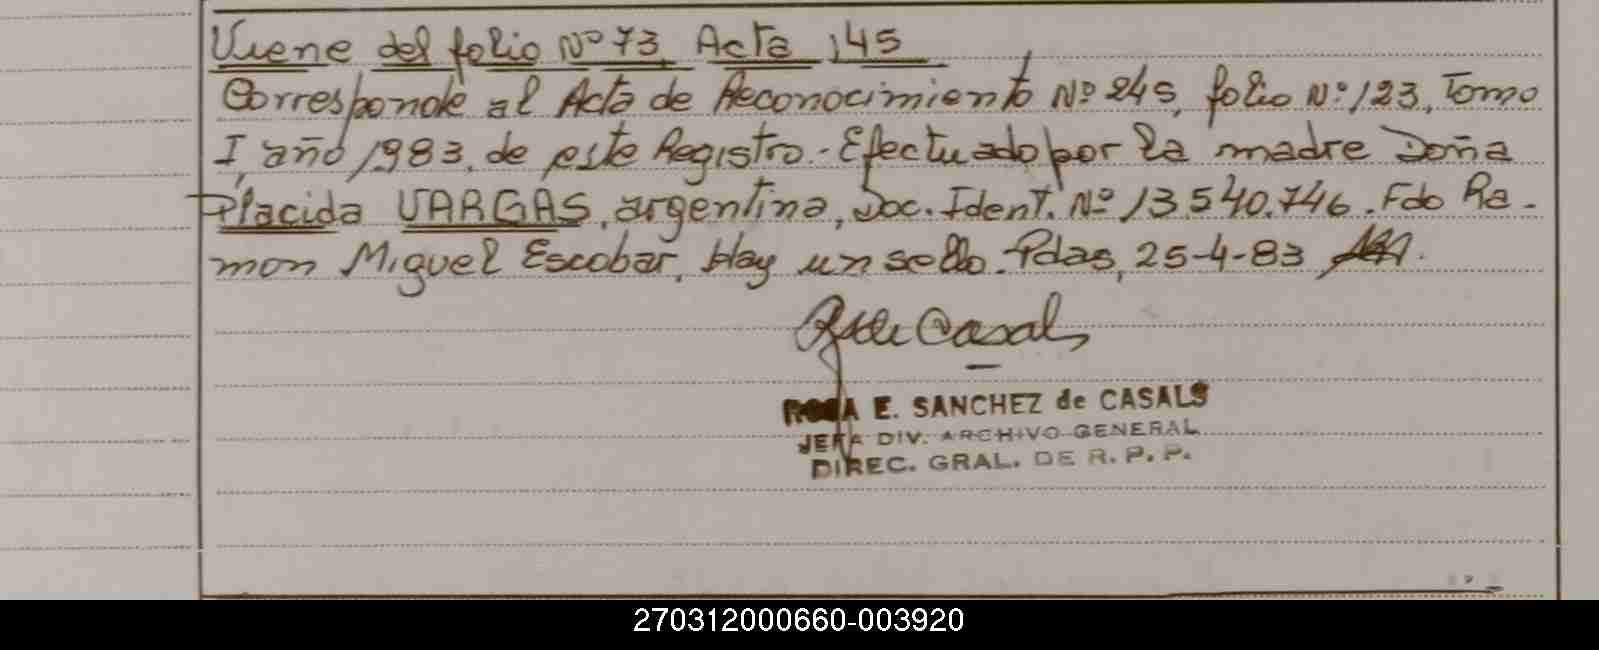 Viene del folio Nº 73, Acta 145
Corresponde al Acta de Reconocimiento Nº 245, folio Nº 123, Tomo
I, año 1983, de este Registro. Efectuado por la madre Doña
Plácida VARGAS, argentina, Doc. Ident. Nº 13.540.746. Fdo Ra-
mon Miguel Escobar, Hay un sello. Pdas, 25-4-83
Casals
ROSA E. SANCHEZ de CASALS
JEFA DIV. ARCHIVO GENERAL
DIREC. GRAL. DE R. P. P.
270312000660-003920